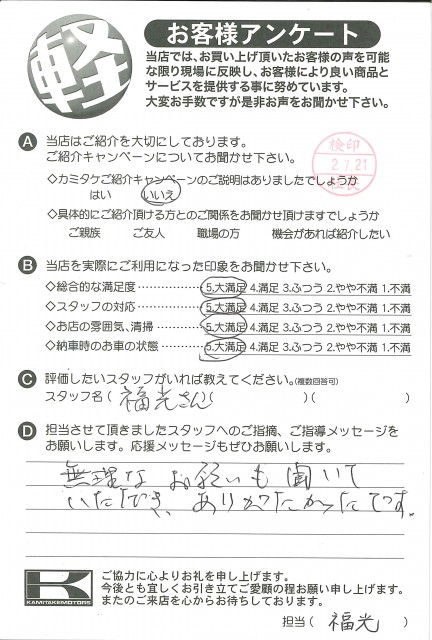 軽
お客様アンケート
当店では、お買い上げ頂いたお客様の声を可能
な限り現場に反映し、お客様により良い商品と
サービスを提供する事に努めています。
大変お手数ですが是非お声をお聞かせ下さい。
A 当店はご紹介を大切にしております。
ご紹介キャンペーンについてお聞かせ下さい。
検印
2.7.21
◇カミタケご紹介キャンペーンのご説明はありましたでしょうか
はい いいえ
◇具体的にご紹介頂ける方とのご関係をお聞かせ頂けますでしょうか
ご親族 ご友人 職場の方 機会があれば紹介したい
B 当店を実際にご利用になった印象をお聞かせ下さい。
◇総合的な満足度…………… 5.大満足 4.満足 3.ふつう 2.やや不満 1.不満
◇スタッフの対応…………… 5.大満足 4.満足 3.ふつう 2.やや不満 1.不満
◇お店の雰囲気、清掃……… 5.大満足 4.満足 3.ふつう 2.やや不満 1.不満
◇納車時のお車の状態……… 5.大満足 4.満足 3.ふつう 2.やや不満 1.不満
C 評価したいスタッフがいれば教えてください。(複数回答可)
スタッフ名( 福光さん )( )( )
D 担当させて頂きましたスタッフへのご指摘、ご指導メッセージを
お願いします。応援メッセージもぜひお願いします。
無理なお願いも聞いて
いただき、ありがたかったです。
K
KAMITAKEMOTORS
ご協力に心よりお礼を申し上げます。
今後とも宜しくお引き立てご愛顧の程お願い申し上げます。
またのご来店を心からお待ちしております。
担当( 福光 )